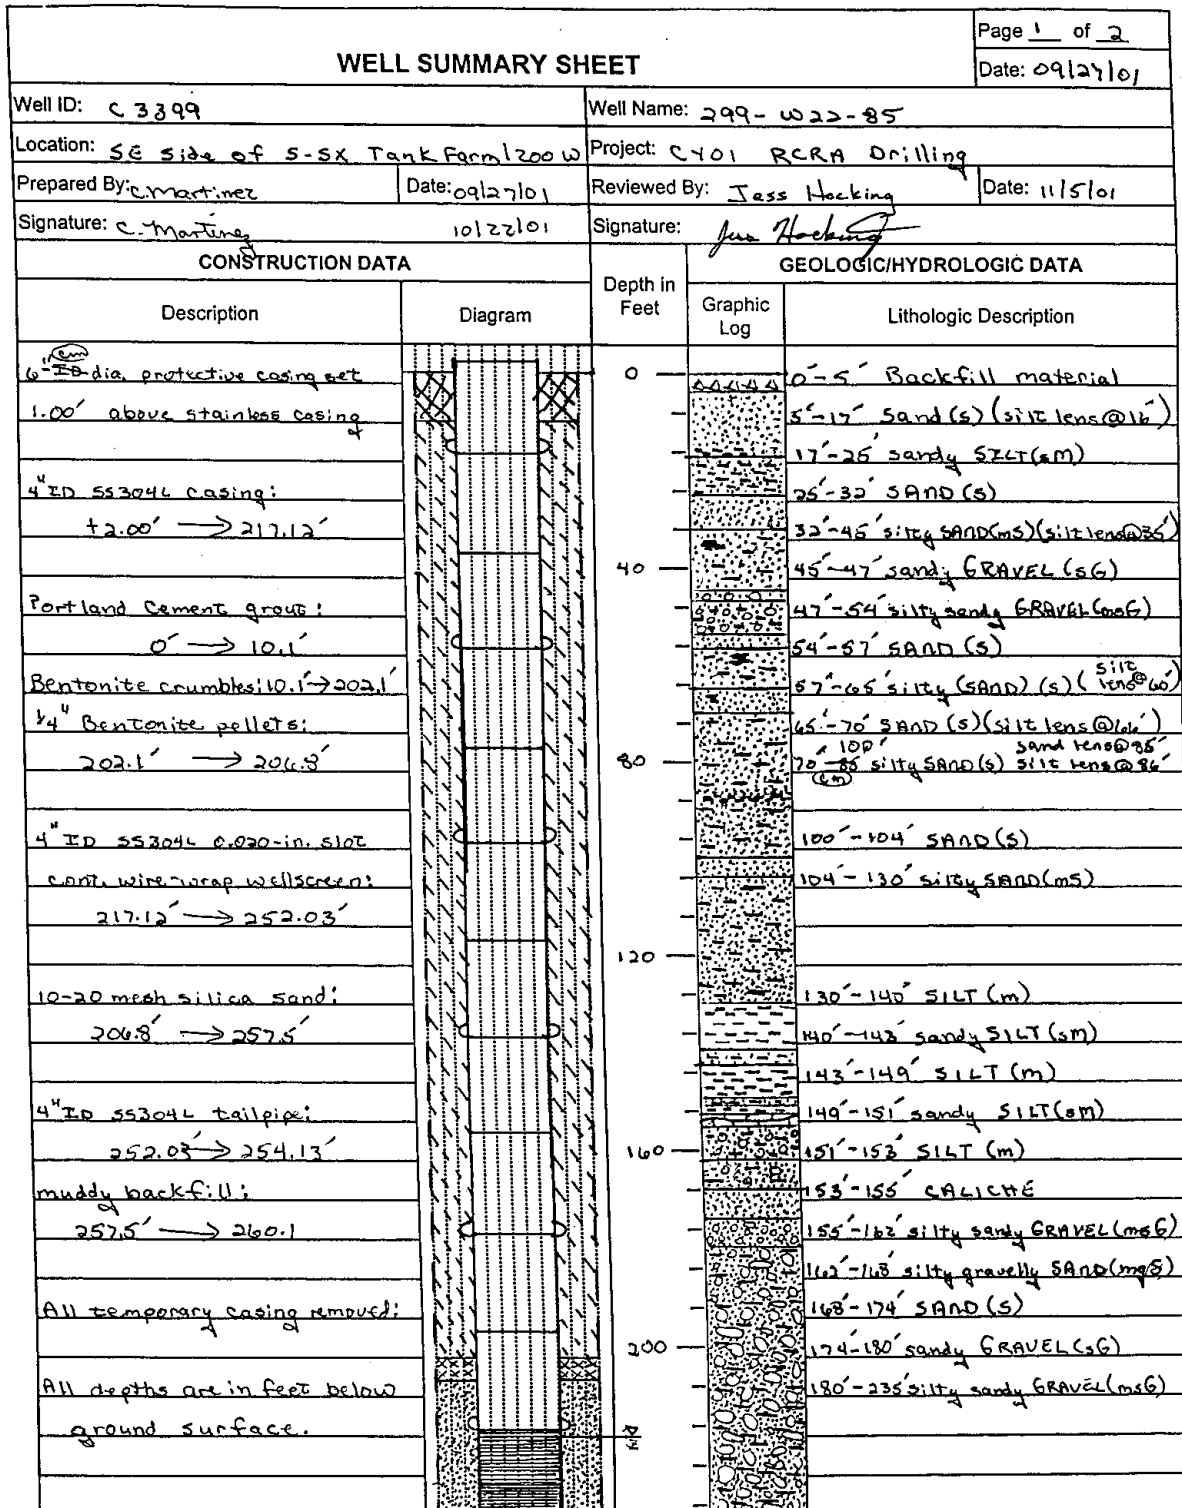 Page 1 of 2
WELL SUMMARY SHEET
Date: 09/27/01
Well ID: C3399
Well Name: 299-W22-85
Location: SE Side of S-SX Tank Farm/200W
Project: CY01 RCRA Drilling
Prepared By: C. Martinez
Date: 09/27/01
Reviewed By: Jess Hocking
Date: 11/5/01
Signature: C. Martinez 10/22/01
Signature: Jess Hocking
CONSTRUCTION DATA
GEOLOGIC/HYDROLOGIC DATA
Description
Diagram
Depth in
Feet
Graphic
Log
Lithologic Description
cm
6" ID dia. protective casing set
1.00' above stainless casing
4" ID SS304L casing:
+2.00' → 217.12'
Portland Cement grout:
0' → 10.1'
Bentonite crumbles: 10.1' → 202.1'
1/4" Bentonite pellets:
202.1' → 206.8'
4" ID SS304L 0.020-in. slot
cont. wire-wrap wellscreen:
217.12' → 252.03'
10-20 mesh silica sand:
206.8' → 257.5'
4" ID SS304L tailpipe:
252.03' → 254.13'
muddy backfill:
257.5' → 260.1
All temporary casing removed:
All depths are in feet below
ground surface.
0
40
80
120
160
200
0'-5' Backfill material
5'-17' Sand (s) (silt lens @ 16')
17'-25' sandy SILT (sM)
25'-32' SAND (s)
32'-45' silty SAND (mS) (silt lens @ 35')
45'-47' sandy GRAVEL (sG)
47'-54' silty sandy GRAVEL (msG)
54'-57' SAND (s)
57'-65' silty (SAND) (s) (silt lens @ 60')
65'-70' SAND (s) (silt lens @ 66')
100' sand lens @ 85'
70'-85' silty SAND (s) silt lens @ 86'
cm
100'-104' SAND (s)
104'-130' silty SAND (mS)
130'-140' SILT (m)
140'-143' sandy SILT (sm)
143'-149' SILT (m)
149'-151' sandy SILT (sm)
151'-153' SILT (m)
153'-155' CALICHE
155'-162' silty sandy GRAVEL (msG)
162'-168' silty gravelly SAND (mgS)
168'-174' SAND (s)
174-180' sandy GRAVEL (sG)
180'-235' silty sandy GRAVEL (msG)